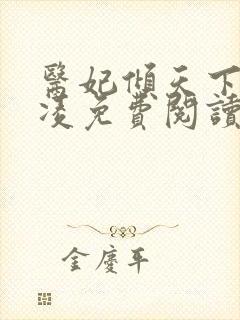 醫妃傾天下
凌免費閱讀
金慶平